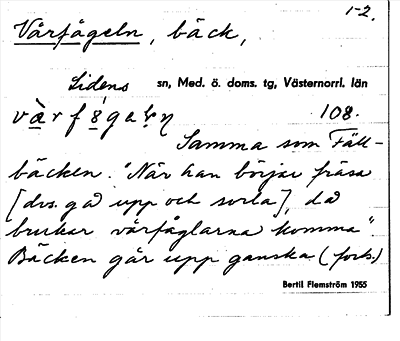 1-2.
Vårfågeln, bäck,
Lidens sn, Med. ö. doms. tg, Västernorrl. län
108.
Samma som Fäll-
bäcken. "När han börjar fräsa
[dvs. gå upp och sorla], då
brukar vårfåglarna komma".
Bäcken går upp ganska (forts.)
Bertil Flemström 1955